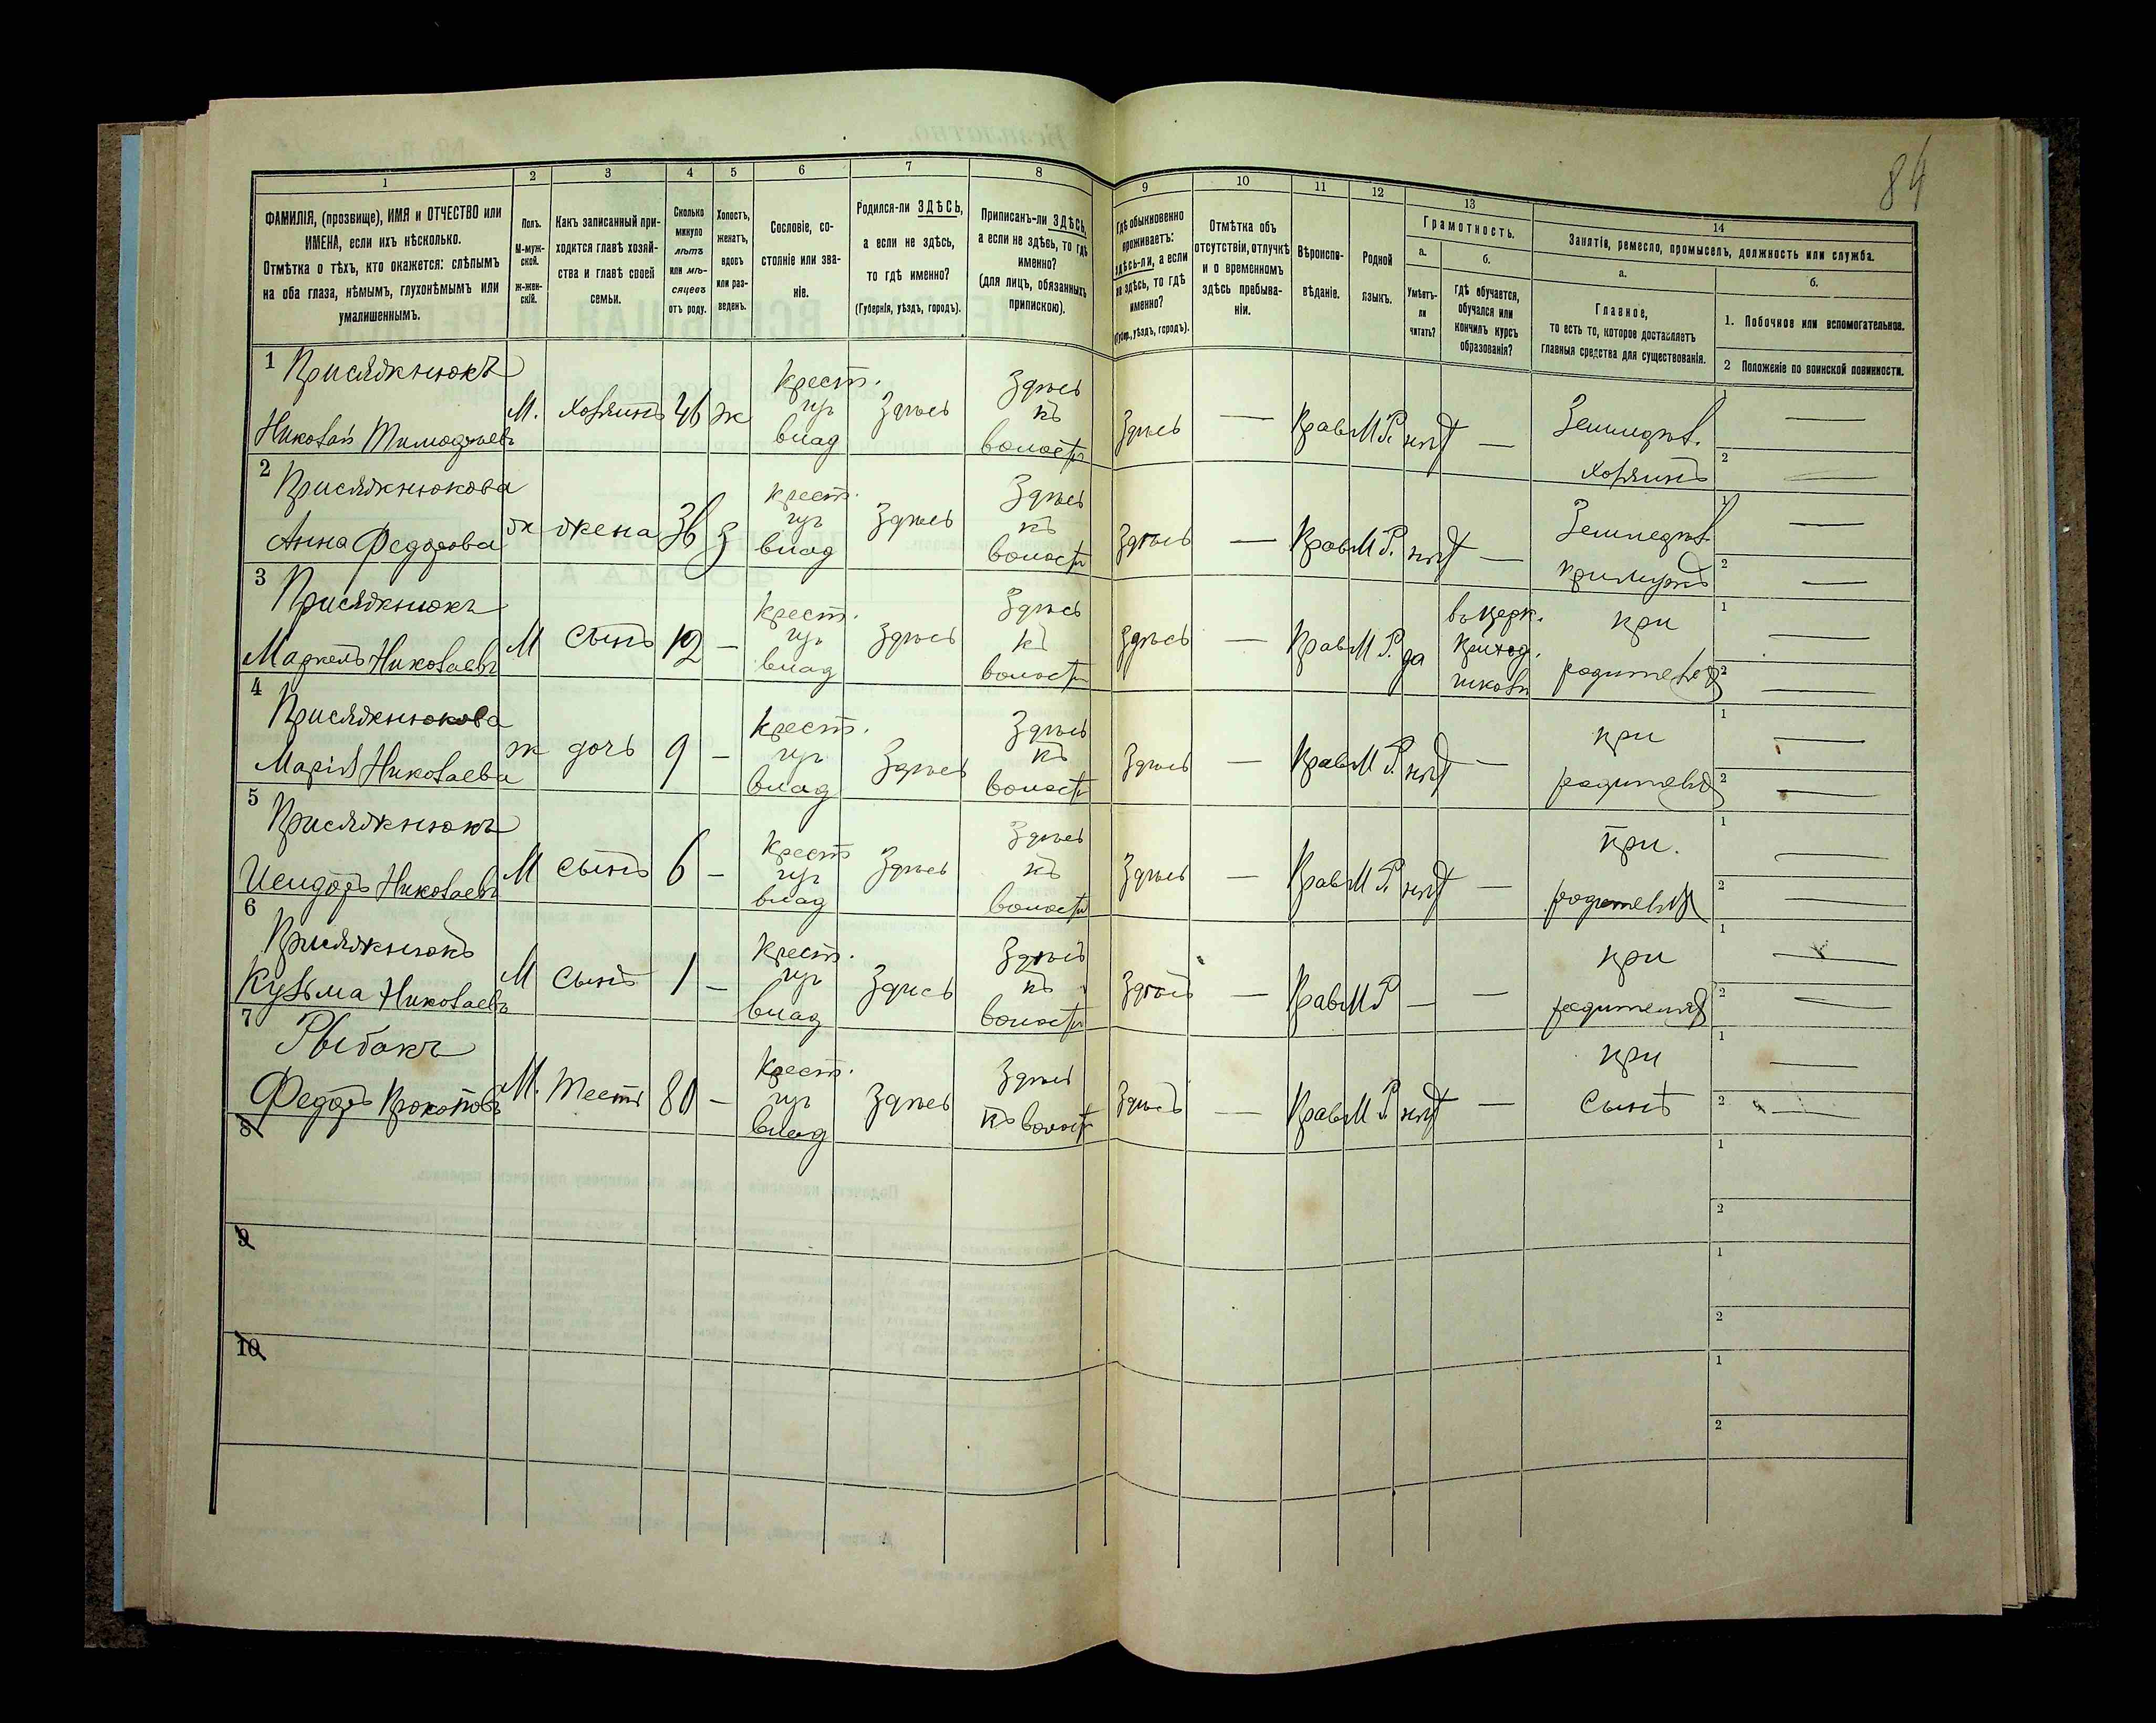 84
1 2 3 4 5 6 7 8 9 10 11 12 13 14
ФАМИЛІЯ, (прозвище), ИМЯ и ОТЧЕСТВО или
ИМЕНА, если ихъ нѣсколько.
Отмѣтка о тѣхъ, кто окажется: слѣпымъ
на оба глаза, нѣмымъ, глухонѣмымъ или
умалишеннымъ.
Полъ.
М-муж-
ской.
ж-жен-
скій.
Какъ записанный при-
ходится главѣ хозяй-
ства и главѣ своей
семьи.
Сколько
минуло
лѣтъ
или мѣ-
сяцевъ
отъ роду.
Холостъ,
женатъ,
вдовъ
или раз-
веденъ.
Сословіе, со-
стояніе или зва-
ніе.
Родился-ли ЗДѢСЬ,
а если не здѣсь,
то гдѣ именно?
(Губернія, уѣздъ, городъ).
Приписанъ-ли ЗДѢСЬ,
а если не здѣсь, то гдѣ
именно?
(для лицъ, обязанныхъ
припискою).
Гдѣ обыкновенно
проживаетъ:
здѣсь-ли, а если
не здѣсь, то гдѣ
именно?
(Губер., уѣздъ, городъ).
Отмѣтка объ
отсутствіи, отлучкѣ
и о временномъ
здѣсь пребыва-
ніи.
Вѣроиспо-
вѣданіе.
Родной
языкъ.
Грамотность.
а.
Умѣетъ-
ли
читать?
б.
гдѣ обучается,
обучался или
кончилъ курсъ
образованія?
Занятіе, ремесло, промыселъ, должность или служба.
а.
Главное,
то есть то, которое доставляетъ
главныя средства для существованія.
б.
1. Побочное или вспомогательное.
2 Положеніе по воинской повинности.
1 Присяжнюкъ
Николай Тимофѣевъ
М. хозяинъ 46 ж
Крест.
изъ
влад
Здѣсь
Здѣсь
къ
волости
Здѣсь — Прав М.Р. нѣтъ —
Земледѣл.
хозяинъ
1 —
2 —
2 Присяжнюкова
Анна Федорова
ж жена 36 з
Крест.
изъ
влад
Здѣсь
Здѣсь
къ
волости
Здѣсь — Прав М Р. нѣтъ —
Земледѣл.
при мужѣ
1 —
2 —
3 Присяжнюкъ
Маркелъ Николаевъ
М Сынъ 12 —
Крест.
изъ
влад
Здѣсь
Здѣсь
къ
волости
Здѣсь — Прав М Р. да
въ церк.
приход.
школѣ
при
родителях
1 —
2 —
4 Присяжнюкова
Марія Николаева
ж дочь 9 —
Крест.
изъ
влад
Здѣсь
Здѣсь
къ
волости
Здѣсь — Прав М Р. нѣтъ —
при
родителях
1 —
2 —
5 Присяжнюкъ
Исидоръ Николаевъ
М сынъ 6 —
Крест
изъ
влад
Здѣсь
Здѣсь
къ
волости
Здѣсь — Прав М Р. нѣтъ —
при.
родителях
1 —
2 —
6 Присяжнюкъ
Кузьма Николаевъ
М Сынъ 1 —
Крест.
изъ
влад
Здѣсь
Здѣсь
къ
волости
Здѣсь — Прав М Р — —
при
родителях
1 —
2 —
7 Рыбакъ
Федоръ Прокоповъ
М. Тесть 80 —
Крест.
изъ
влад
Здѣсь
Здѣсь
къ волост
Здѣсь — Прав М Р. нѣтъ —
при
Сынѣ
1 —
2 —
8
1
2
9
1
2
10
1
2